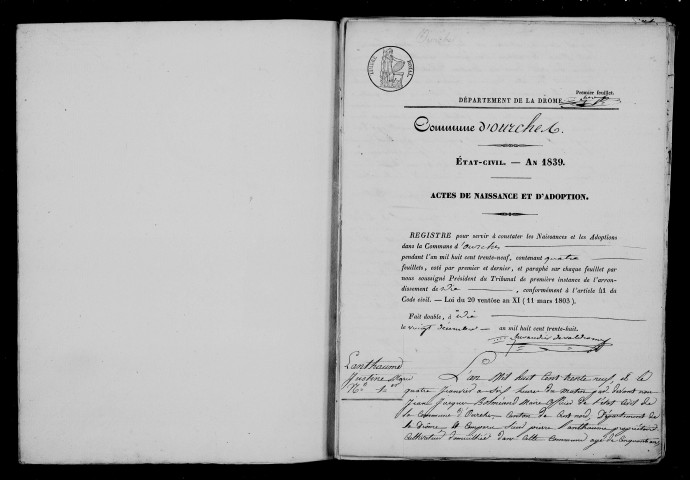 Ourche
TIMBRE ROYAL
Premier feuillet.
DÉPARTEMENT DE LA DROME.
Commune d'ourches.
ÉTAT-CIVIL. — AN 1839.
ACTES DE NAISSANCE ET D'ADOPTION.
REGISTRE pour servir à constater les Naissances et les Adoptions
dans la Commune d'ourches
pendant l'an mil huit cent trente-neuf, contenant quatre
feuillets, coté par premier et dernier, et paraphé sur chaque feuillet par
nous soussigné Président du Tribunal de première instance de l'arron-
dissement de Die, conformément à l'article 41 du
Code civil. — Loi du 20 ventôse an XI (11 mars 1803).
Fait double, à Die
le vingt décembre an mil huit cent trente-huit.
Lanthaume
Justine
N° 1er
L'an Mil huit Cent trente neuf, et le
quatre Janvier a heure du matin par devant nous
Jean Jacques Maire officier de l'état Civil de
la commune d'Ourche Canton de Crest nord, Département de
la Drôme, Est Comparu pierre Lanthaume propriétaire
Cultivateur domicilié dans cette commune age de Cinquante ans